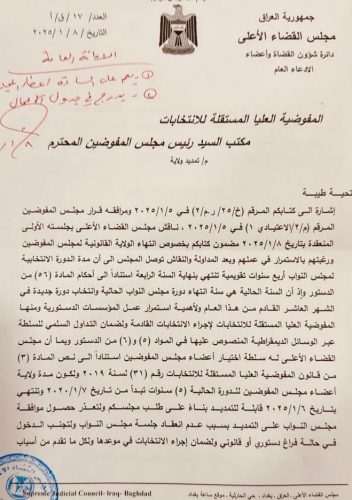 جمهورية العراق
مجلس القضاء الأعلى
دائرة شؤون القضاة وأعضاء
الادعاء العام
العدد / ١٧/ق/أ
التاريخ /٢٠٢٥/١/٨
الامانة العامة
المفوضية العليا المستقلة للانتخابات
مكتب السيد رئيس مجلس المفوضين المحترم
م/ تمديد ولاية
تحية طيبة
إشارة الى كتابكم المرقم (خ/٢٥/ ر.م٢) في ٢٠٢٥/١/٥ ومرافقه قرار مجلس المفوضين
المرقم (م/٢/الاعتيادي ١) في ٢٠٢٥/١/٥، ناقش مجلس القضاء الأعلى بجلسته الأولى
المنعقدة بتاريخ ٢٠٢٥/١/٨ مضمون كتابكم بخصوص انتهاء الولاية القانونية لمجلس المفوضين
ورغبتهم بالاستمرار في عملهم وبعد المداولة والنقاش توصل المجلس الى أن مدة الدورة الانتخابية
لمجلس النواب أربع سنوات تقويمية تنتهي بنهاية السنة الرابعة استناداً الى أحكام المادة (٥٦) من
الدستور وإذ أن السنة الحالية هي سنة انتهاء دورة مجلس النواب الحالية وانتخاب دورة جديدة في
الشهر العاشر القادم من هذا العام ولأهمية استمرار عمل المؤسسات الدستورية ومنها
المفوضية العليا المستقلة للانتخابات لإجراء الانتخابات القادمة ولضمان التداول السلمي للسلطة
عبر الوسائل الديمقراطية المنصوص عليها في المواد (٥) و(٦) من الدستور وبما أن مجلس
القضاء الأعلى له سلطة اختيار أعضاء مجلس المفوضين استناداً الى نص المادة (٣)
من قانون المفوضية العليا المستقلة للانتخابات رقم (٣١) لسنة ٢٠١٩ ولكون مدة ولاية
أعضاء مجلس المفوضين للدورة الحالية (٥) سنوات تبدأ من تاريخ ٢٠٢٠/١/٧ وتنتهي
بتاريخ ٢٠٢٥/١/٦ قابلة للتمديد بناءً على طلب مجلسكم ولتعذر حصول موافقة
مجلس النواب على التمديد بسبب عدم انعقاد جلسة مجلس النواب ولتجنب الدخول
في حالة فراغ دستوري أو قانوني ولضمان إجراء الانتخابات في موعدها ولكل ما تقدم من أسباب
Supreme Judicial Council- Iraq- Baghdad
مجلس القضاء الأعلى - العراق، بغداد، حي الحارثية، موقع ساعة بغداد